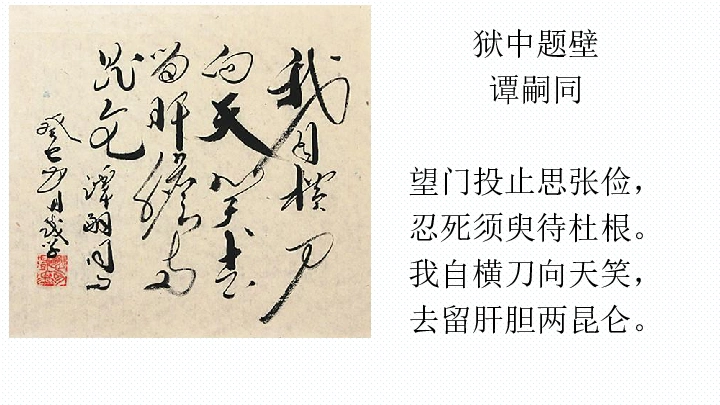 我自横刀
向天笑去
留肝胆两
昆仑
谭嗣同句
癸巳
狱中题壁
谭嗣同
望门投止思张俭，
忍死须臾待杜根。
我自横刀向天笑，
去留肝胆两昆仑。